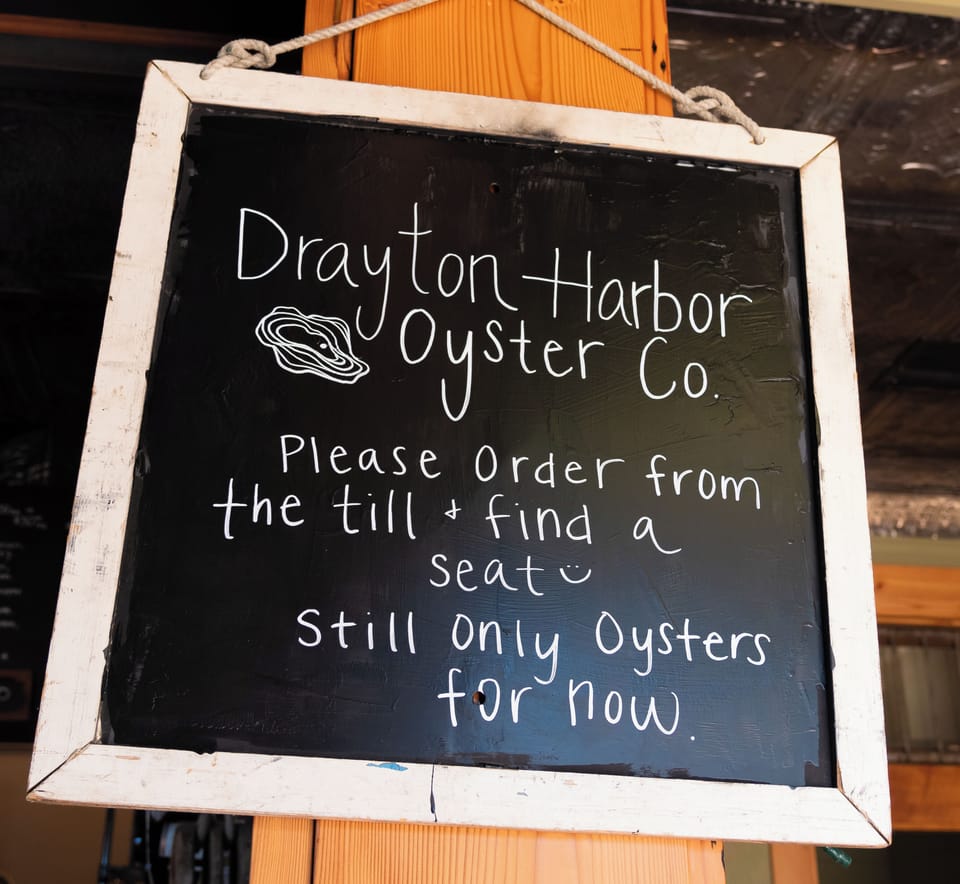 Drayton Harbor
Oyster Co.
Please Order from
the till + find a
seat
Still Only Oysters
for now.